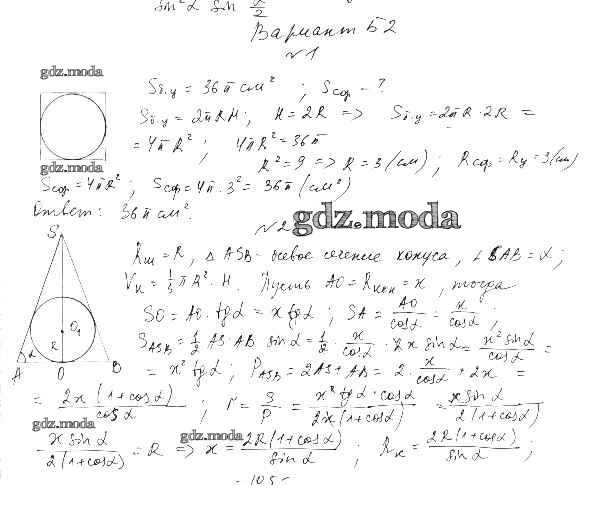 sin²α sin α/2
Вариант Б2
№1
gdz.moda
Sб.у = 36π см² ; Sсф - ?
Sб.у = 2πRH ; H = 2R => Sб.у = 2πR · 2R =
= 4πR² ; 4πR² = 36π
gdz.moda
R² = 9 => R = 3 (см) ; Rсф = Rу = 3 (см)
Sсф = 4πR² ; Sсф = 4π · 3² = 36π (см²)
Ответ: 36π см².
№2
gdz.moda
S
Rш = R, △ ASB - осевое сечение конуса, ∠SAB = α ;
Vк = 1/3 πR² · H. Пусть AO = Rкон = x, тогда
SO = AO · tgα = x tgα ; SA = AO/cosα = x/cosα ;
O₁
R
SASB = 1/2 AS · AB sinα = 1/2 · x/cosα · 2x sinα = x² sinα/cosα =
α
A O B
= x² tgα ; PASB = 2AS + AB = 2 · x/cosα + 2x =
= 2x(1+cosα)/cosα ; r = S/P = x² tgα · cosα/2x(1+cosα) = x sinα/2(1+cosα)
gdz.moda
x sinα/2(1+cosα) = R => x = 2R(1+cosα)/sinα ; Rк = 2R(1+cosα)/sinα ;
gdz.moda
- 105 -